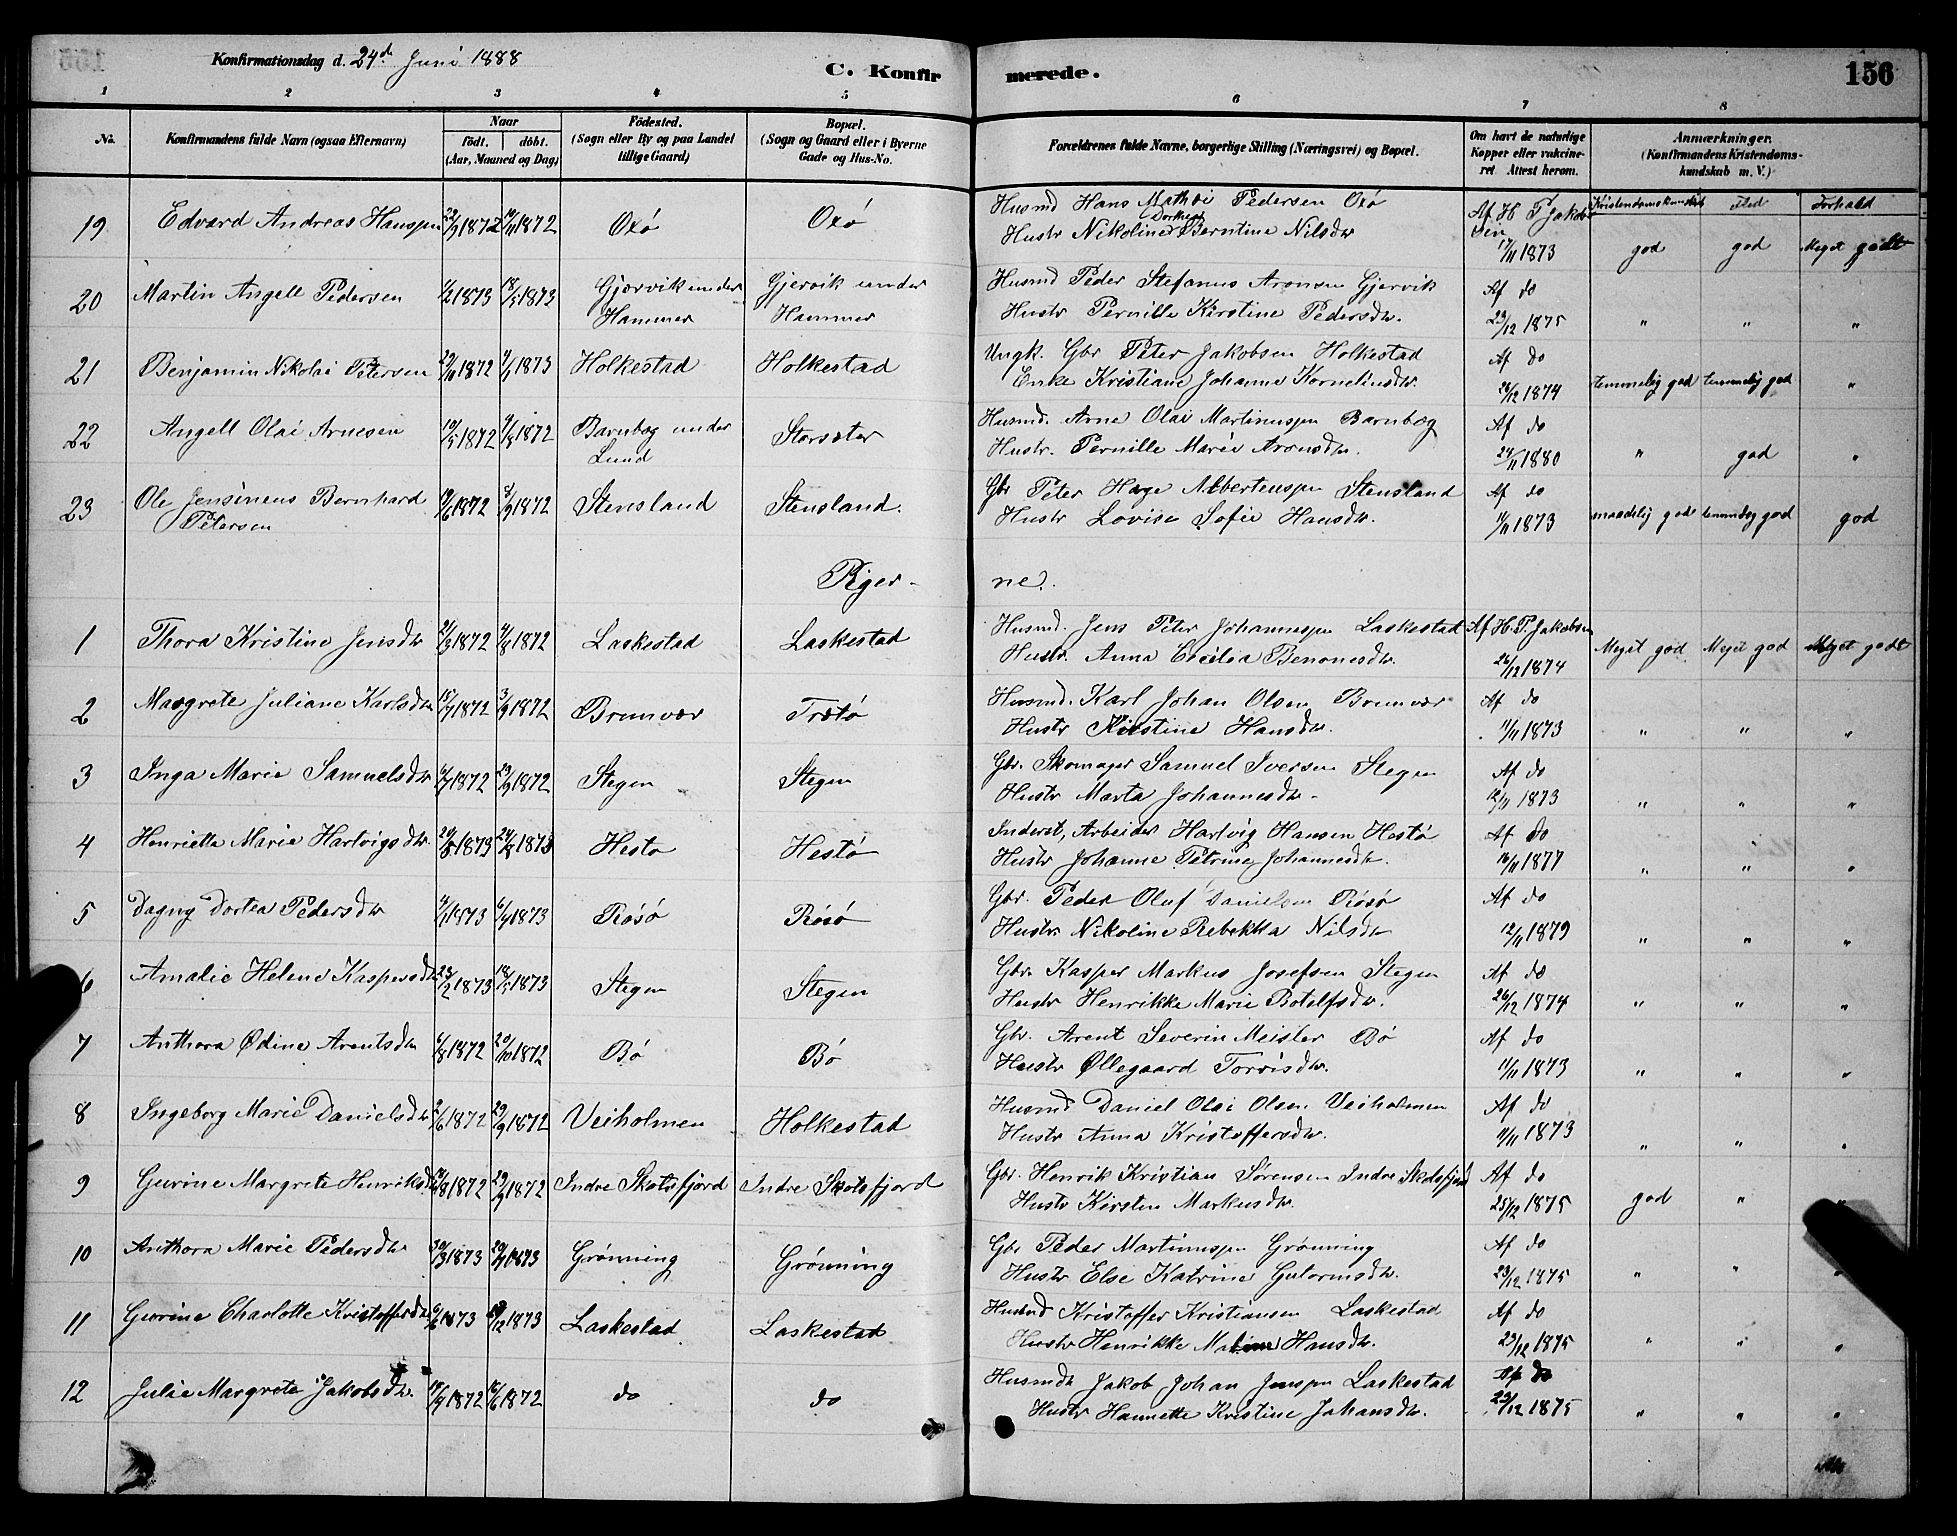 Konfirmationsdag d. 24de Juni 1888
C. Konfirmerede.
156
1 2 3 4 5 6 7 8
No. Konfirmandens fulde Navn (ogsaa Efternavn) Naar født. døbt. (Aar, Maaned og Dag) Fødested. (Sogn eller By og paa Landet tillige Gaard) Bopæl. (Sogn og Gaard eller i Byerne Gade og Hus-No. Forældrenes fulde Navne, borgerlige Stilling (Næringsvei) og Bopæl. Om havt de naturlige Kopper eller vaccineret Attest herom. Anmærkninger. (Konfirmandens Kristendomskundskab m. V.)
Kristendomskundsk. Flid Forhold
19 Edvard Andreas Hanssen 22/9 1872 1872 Oxø Oxø Husmd Hans Mathei Pedersen Oxø Af H P Jakobsen
Hustr Nikoline Dorthea Berntine Nilsdtr 17/11 1873 god god Meget godt
20 Martin Angell Pedersen 1/2 1873 18/5 1873 Gjervik under Hammer Gjervik under Hammer Husmd Peder Stefanus Aronsen Gjervik Af do
Hustr Pernille Kirstine Pedersdtr. 23/12 1875 " " "
21 Benjamin Nikolai Petersen 1872 1873 Holkestad Holkestad Ungk. Gbr Peter Jakobsen Holkestad Af do
Enke Kristiane Johanne Korneliusdtr. 26/12 1874 temmelig god temmelig god "
22 Angell Olai Arnesen 10/5 1872 1872 Barnbøg under Lund Storsæter Husmd. Arne Olai Martinussen Barnbøg Af do
Hustr. Pernille Marie Aronsdtr. 24/11 1880 " god "
23 Ole Jensineus Bernhard Petersen 1872 1872 Stensland Stensland. Gbr Peter Hage Albertussen Stensland Af do
Hustr Lovise Sofie Hansdtr. 11/11 1873 maadelig god temmelig god god
Piger-ne.
1 Thora Kristine Jensdtr 1872 4/8 1872 Laskestad Laskestad Husmd. Jens Peter Johannessen Laskestad Af H. P. Jakobsen
Hustr. Anna Cecilia Benonesdtr. 26/12 1874 Meget god Meget god Meget godt
2 Margrete Juliane Karlsdtr 1872 1872 Brunvær Trætø Husmd. Karl Johan Olsen Brunvær Af do
Hustr Kirstine Hansdtr. 11/11 1873 " " "
3 Inga Marie Samuelsdtr 1872 29/9 1872 Stegen Stegen Gbr. Skomager Samuel Iversen Stegen Af do
Hustr Marta Johannesdtr. 12/11 1873 " " "
4 Henriette Marie Hartvigsdtr. 1873 1873 Hestø Hestø Inderst, Arbeider Hartvig Hansen Hestø Af do
Hustr Johanne Petrine Johannesdtr. 16/11 1877 " " "
5 Dagny Dortea Pedersdtr 1873 1873 Røsø Røsø Gbr. Peder Oluf Danielsen Røsø Af do
Hustr. Nikoline Rebekka Nilsdtr 12/11 1879 " " "
6 Amalie Helene Kaspersdtr 23/2 1873 18/5 1873 Stegen Stegen Gbr. Kasper Markus Josefsen Stegen Af do
Hustr Henrikke Marie Rotelfsdtr. 26/12 1874 " " "
7 Anthora Ødine Arentsdtr 6/8 1872 20/10 1872 Bø Bø Gbr. Arent Severin Meisler Bø Af do
Hustr Øllegaard Torrisdtr. 11/11 1873 " " "
8 Ingeborg Marie Danielsdtr 1872 29/9 1872 Veiholmen Holkestad Husmd Daniel Olai Olsen Veiholmen Af do
Hustr Anna Kristoffersdtr. 11/11 1873 " " "
9 Gurine Margrete Henriksdtr 1872 29/9 1872 Indre Skotsfjord Indre Skotsfjord Gbr. Henrik Kristian Sørensen Indre Skotsfjord Af do
Hustr Kirsten Markusdtr. 25/12 1875 god " "
10 Anthora Marie Pedersdtr 30/3 1873 1873 Grønning Grønning Gbr Peder Martinussen Grønning Af do
Hustr Else Katrine Gutormsdtr. 23/12 1875 " " "
11 Gurine Charlotte Kristoffersdtr 1873 1873 Laskestad Laskestad Husmd Kristoffer Kristiansen Laskestad Af do
Hustr Henrikke Hansdtr. 23/12 1875 " " "
12 Julie Margrete Jakobsdtr. 1872 1872 do do Husmd Jakob Johan Jenssen Laskestad Af do
Hustr Hannette Kristine Johansdtr. 23/12 1875 " " "